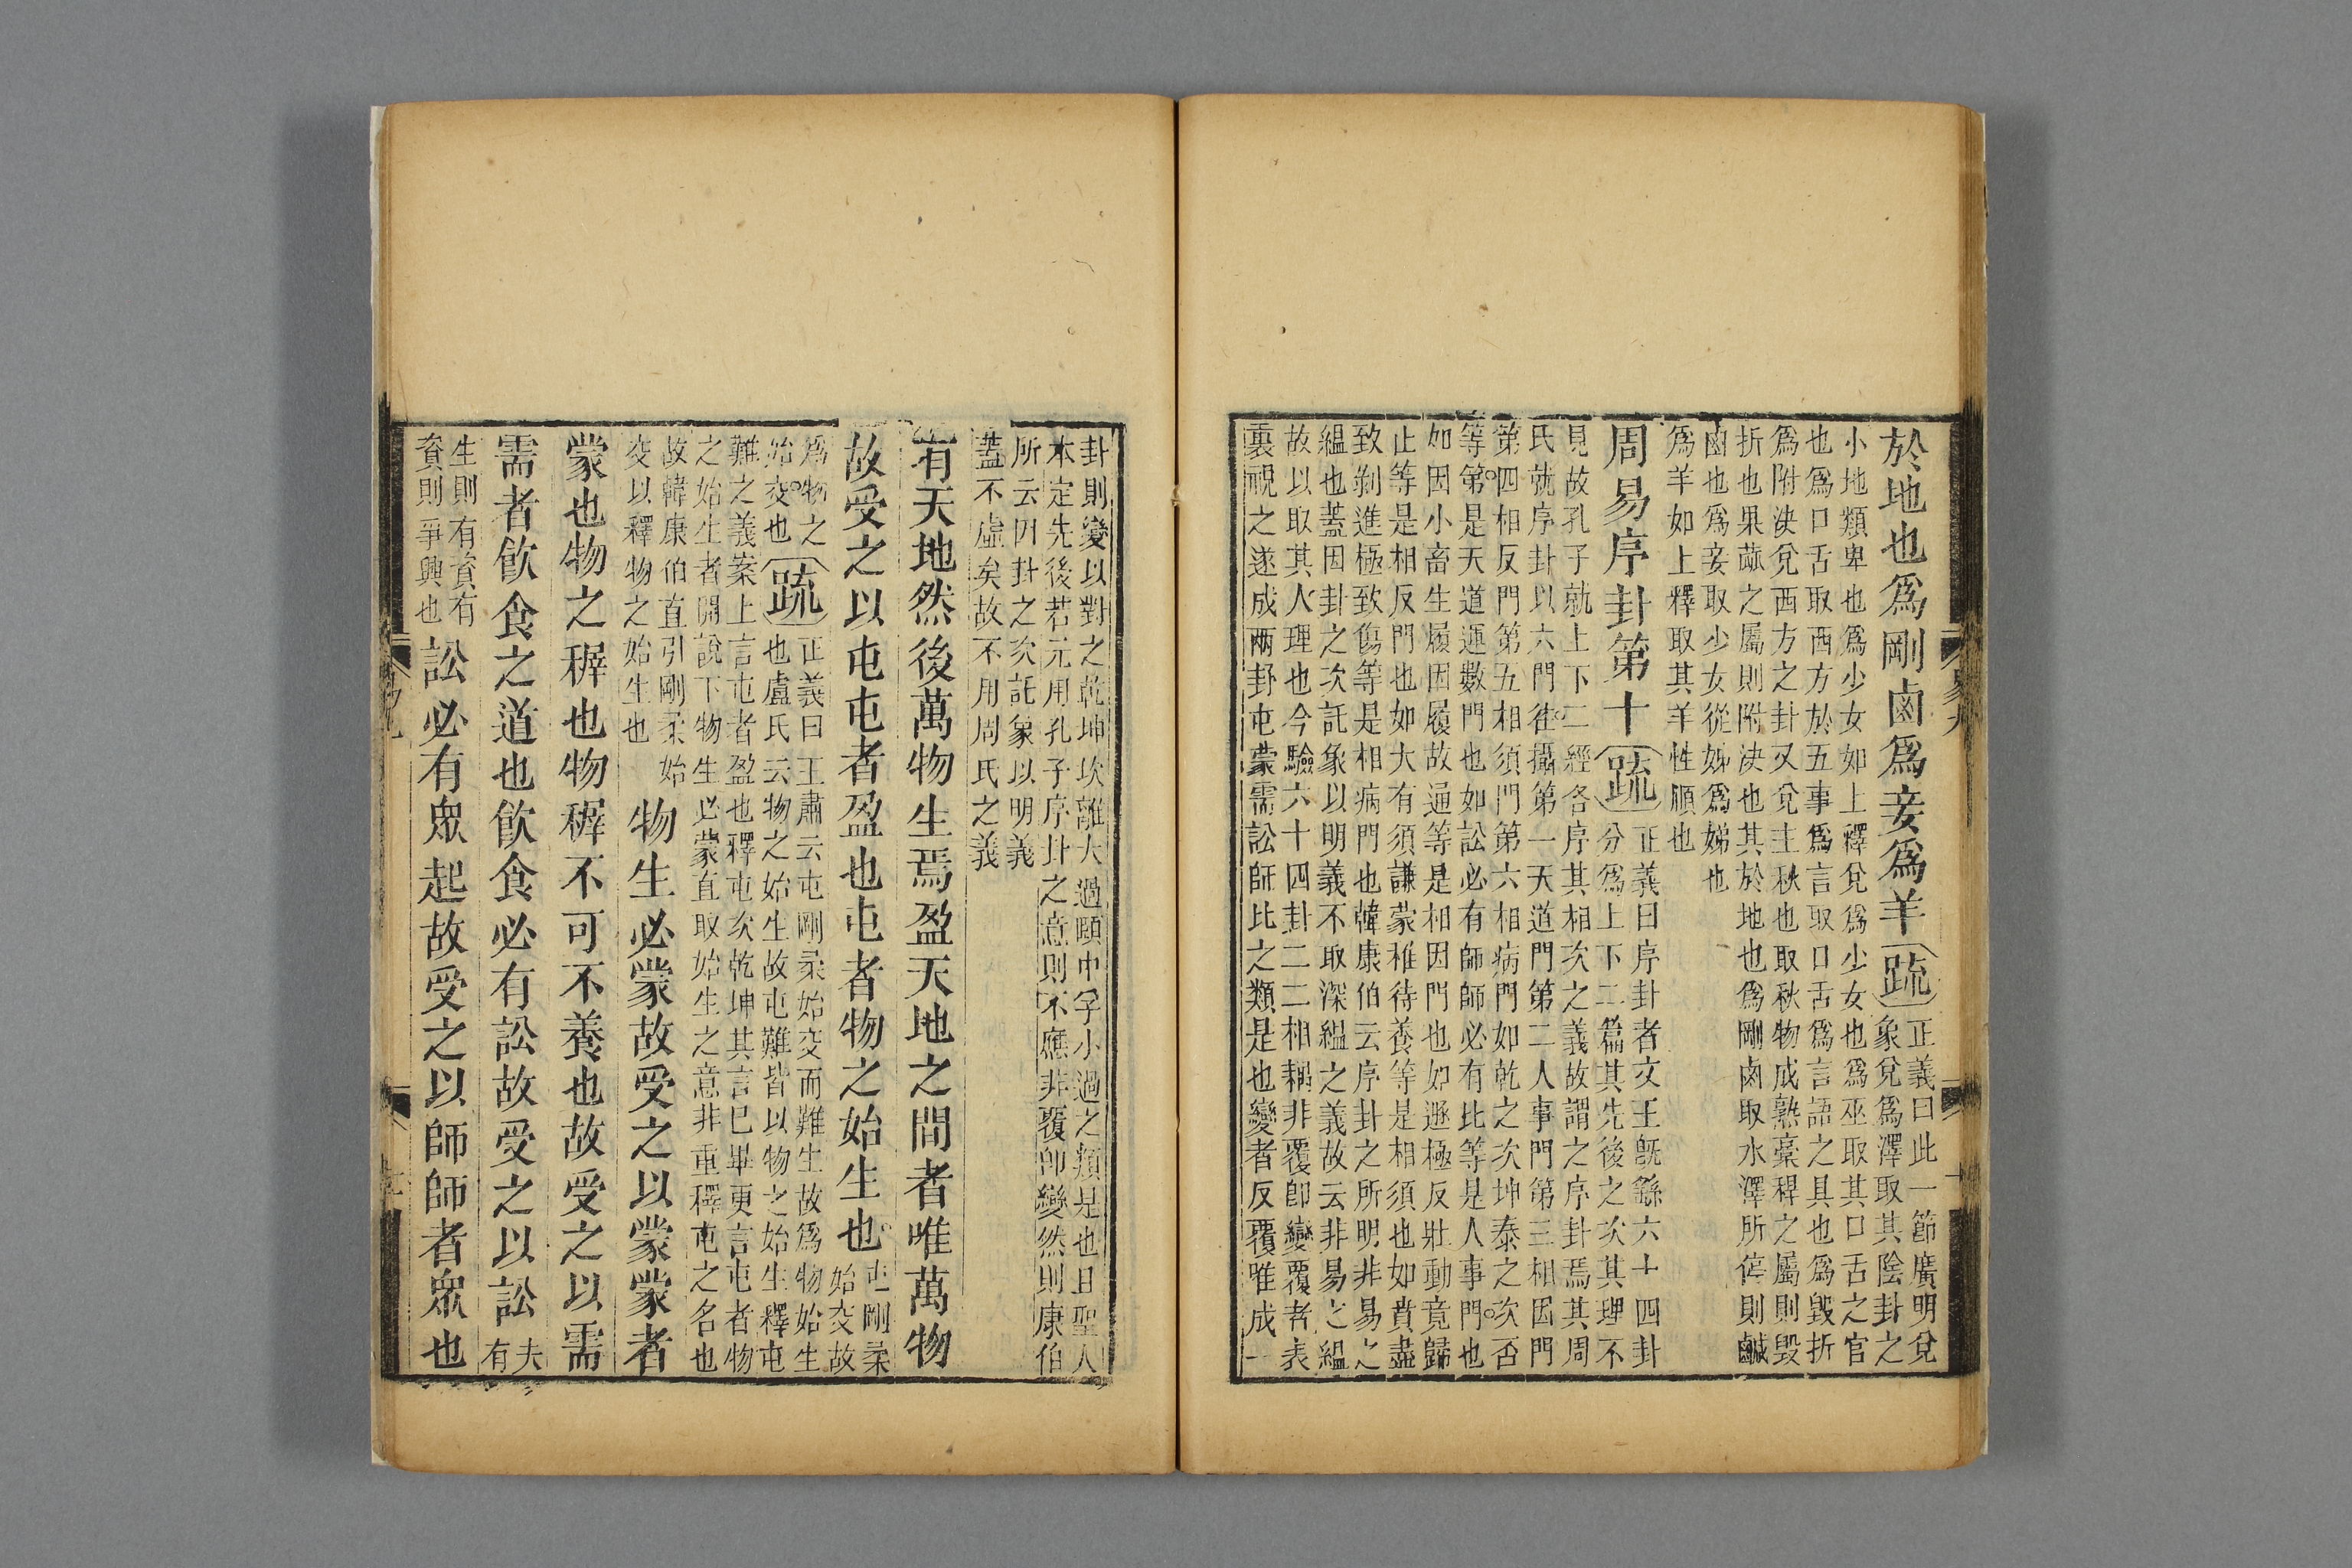 於地也爲剛鹵爲妾爲羊疏正義曰此一節廣明兌
象兌爲澤取其陰卦之
小地類卑也爲少女如上釋兌爲少女也爲巫取其口舌之官
也爲口舌取西方於五事爲言取口舌爲言語之具也爲毀折
爲附決兌西方之卦又兌主秋也取秋物成熟槀稈之屬則毀
折也果蓏之屬則附決也其於地也爲剛鹵取水澤所停則鹹
鹵也爲妾取少女從姊爲娣也
爲羊如上釋取其羊性順也
周易序卦第十疏正義曰序卦者文王旣繇六十四卦
分爲上下二篇其先後之次其理不
見故孔子就上下二經各序其相次之義故謂之序卦焉其周
氏就序卦以六門往攝第一天道門第二人事門第三相因門
第四相反門第五相須門第六相病門如乾之次坤泰之次否
等第是天道運數門也如訟必有師師必有比等是人事門也
如因小畜生履因履故通等是相因門也如遯極反壯動竟歸
止等是相反門也如大有須謙蒙稚待養等是相須也如賁盡
致剝進極致傷等是相病門也韓康伯云序卦之所明非易之
縕也蓋因卦之次託象以明義不取深縕之義故云非易之縕
故以取其人理也今驗六十四卦二二相耦非覆卽變覆者表
裏視之遂成兩卦屯蒙需訟師比之類是也變者反覆唯成一
卦則變以對之乾坤坎離大過頤中孚小過之類是也且聖人
本定先後若元用孔子序卦之意則不應非覆卽變然則康伯
所云因卦之次託象以明義
蓋不虛矣故不用周氏之義
有天地然後萬物生焉盈天地之間者唯萬物
故受之以屯屯者盈也屯者物之始生也屯剛柔
始交故
爲物之
始交也疏正義曰王肅云屯剛柔始交而難生故爲物始生
也盧氏云物之始生故屯難皆以物之始生釋屯
難之義案上言屯者盈也釋屯次乾坤其言已畢更言屯者物
之始生者開說下物生必蒙直取始生之意非重釋屯之名也
故韓康伯直引剛柔始
交以釋物之始生也物生必蒙故受之以蒙蒙者
蒙也物之穉也物穉不可不養也故受之以需
需者飮食之道也飮食必有訟故受之以訟夫
有
生則有資有
資則爭興也訟必有眾起故受之以師師者眾也